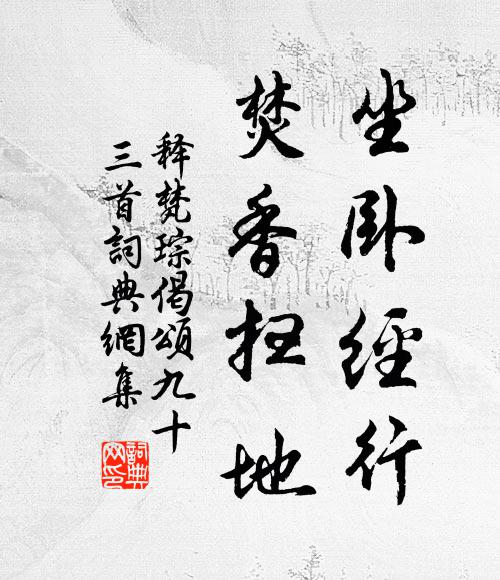 坐卧經行
焚香扫地
释梵琮偈頌九十
三首詞典網集
詞典网印